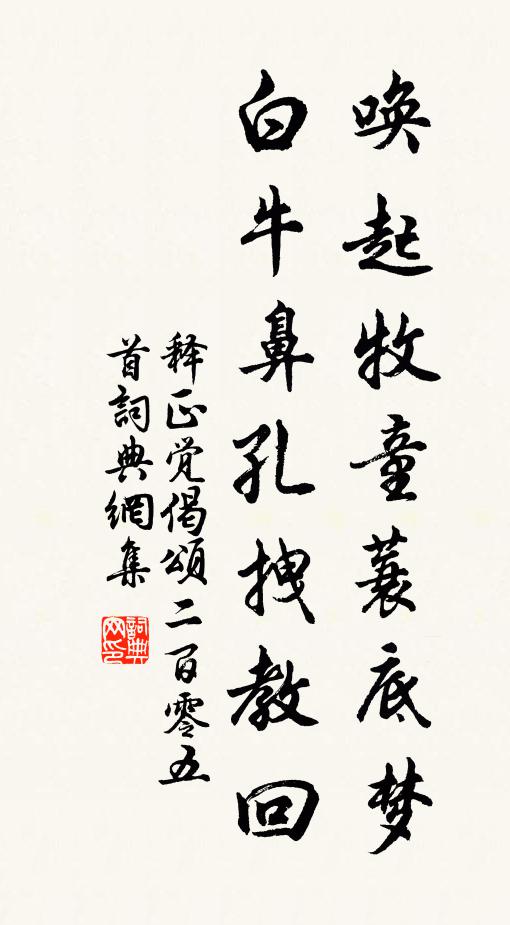 唤起牧童蓑底梦
白牛鼻孔拽教回
释正觉偈颂二百零五
首词典網集
詞典网印